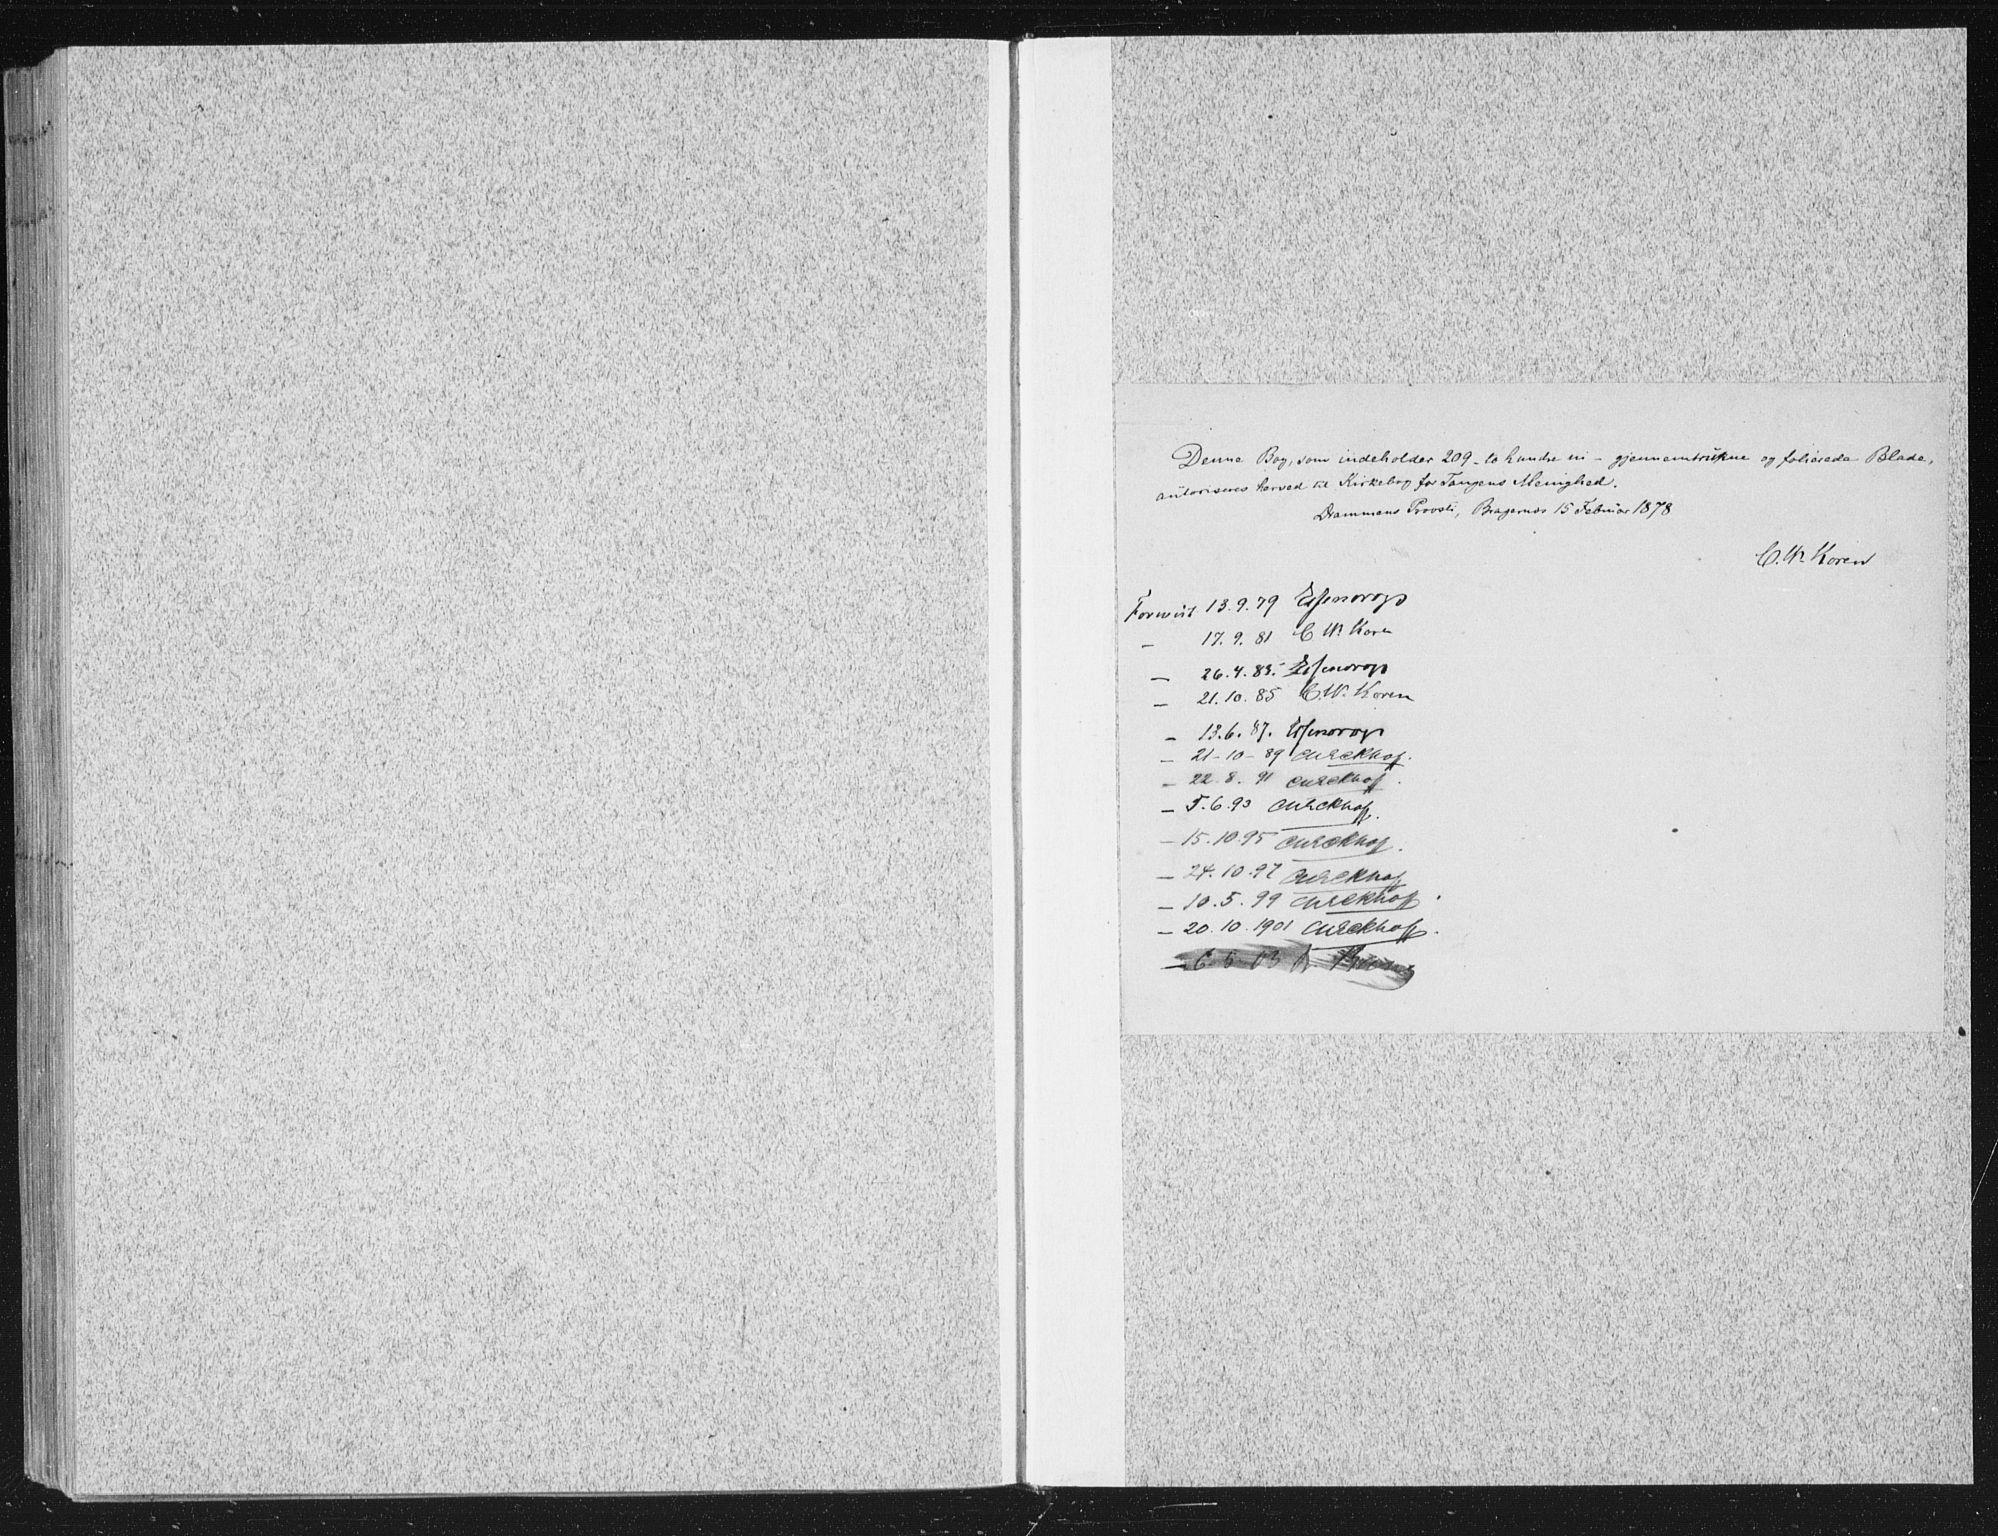 Denne Bog, som indeholder 209 - to hundre ni - gjennemtrukne og folierede Blade,
autoriseres herved til Kirkebog for Tangens Menighed.
Drammens Provsti, Bragernæs 15 Februar 1878
C. W. Koren
Forevist 13.9.79 Essendrop
— 17.9.81 C W. Koren
— 26.4.83. Essendrop
— 21.10.85 C. W. Koren
— 13.6.87. Essendrop
— 21-10-89
— 22.8.91
— 5.6.93
— 15.10.95
— 24.10.97
— 10.5.99
— 20.10.1901
— 6-5-03